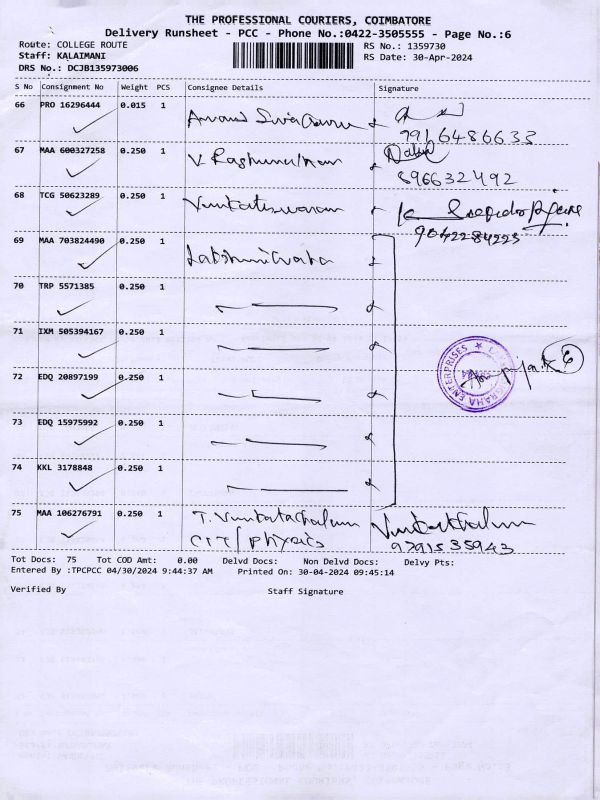 THE PROFESSIONAL COURIERS, COIMBATORE
Delivery Runsheet - PCC - Phone No.:0422-3505555 - Page No.:6
Route: COLLEGE ROUTE
RS No.: 1359730
Staff: KALAIMANI
RS Date: 30-Apr-2024
DRS No.: DCJB135973006
S No Consignment No Weight PCS Consignee Details Signature
66 PRO 16296444 0.015 1
7916486633
67 MAA 600327258 0.250 1 V. Raghunathan
896632492
68 TCG 50623289 0.250 1 Venkateswaran
9042284223
69 MAA 703824490 0.250 1
70 TRP 5571385 0.250 1
71 IXM 505394167 0.250 1
ENTERPRISES
6
72 EDQ 20897199 0.250 1
73 EDQ 15975992 0.250 1
74 KKL 3178848 0.250 1
75 MAA 106276791 0.250 1 T. Venkatachalam Venkatachalam
CIT/Physics 9791535943
Tot Docs: 75 Tot COD Amt: 0.00 Delvd Docs: Non Delvd Docs: Delvy Pts:
Entered By :TPCPCC 04/30/2024 9:44:37 AM Printed On: 30-04-2024 09:45:14
Verified By Staff Signature